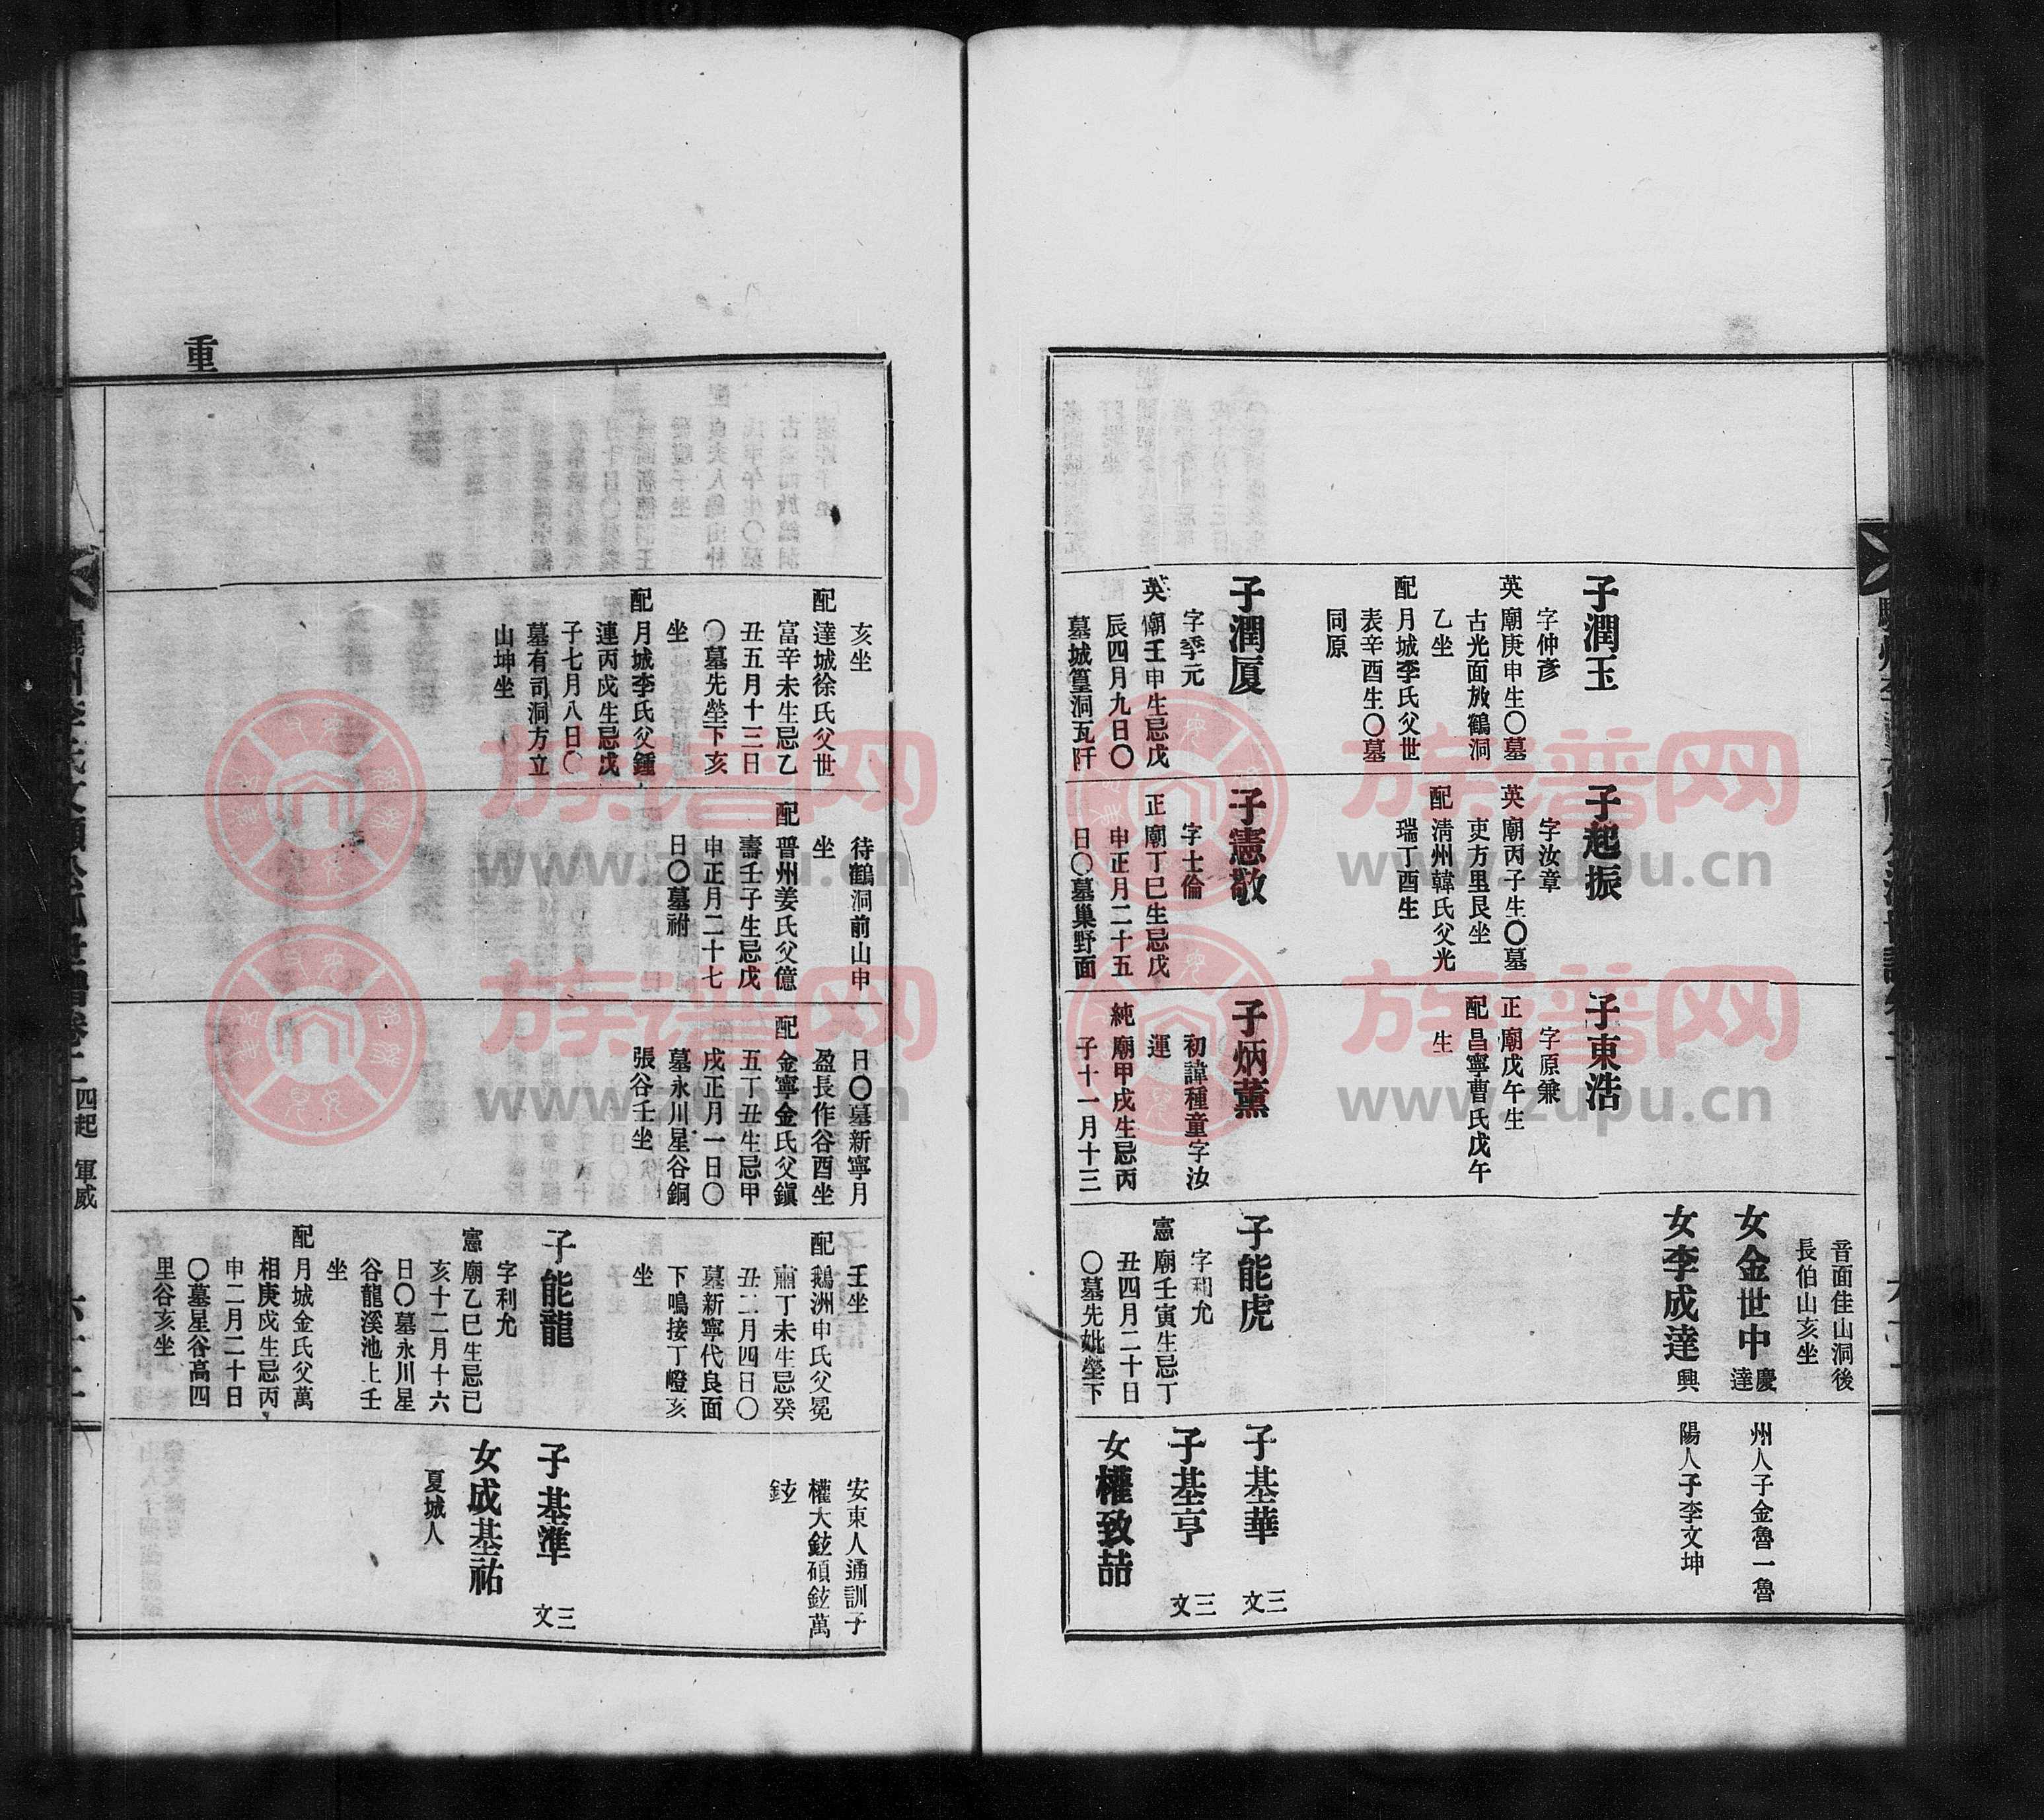 子潤玉
字仲彥
英廟庚申生〇墓
古光面放鶴洞
乙坐
配月城李氏父世
表辛酉生〇墓
同原
子潤厦
字季元
英廟壬申生忌戊
辰四月九日〇
墓城篁洞瓦阡
子起振
字汝章
英廟丙子生〇墓
吏方里艮坐
配清州韓氏父光
瑞丁酉生
子憲敬
字士倫
正廟丁巳生忌戊
申正月二十五
日〇墓巢野面
子東浩
字原兼
正廟戊午生
配昌寧曹氏戊午
生
子炳薰
初諱種童字汝
運
純廟甲戌生忌丙
子十一月十三
音面佳山洞後
長伯山亥坐
女金世中慶達
女李成達興
子能虎
字利允
憲廟壬寅生忌丁
丑四月二十日
〇墓先妣塋下
州人子金魯一魯
陽人子李文坤
子基華三文
子基亨三文
女權致喆
重
亥坐
配達城徐氏父世
富辛未生忌乙
丑五月十三日
〇墓先塋下亥
坐
配月城李氏父鍾
連丙戌生忌戊
子七月八日〇
墓有司洞方立
山坤坐
待鶴洞前山申
坐
配晋州姜氏父億
壽壬子生忌戊
申正月二十七
日〇墓祔
日〇墓新寧月
盈長作谷酉坐
配金寧金氏父鎭
五丁丑生忌甲
戌正月一日〇
墓永川星谷銅
張谷壬坐
壬坐
配鵝洲申氏父冕
肅丁未生忌癸
丑二月四日〇
墓新寧代良面
下鳴接丁嶝亥
坐
子能龍
字利允
憲廟乙巳生忌已
亥十二月十六
日〇墓永川星
谷龍溪池上壬
坐
配月城金氏父萬
相庚戌生忌丙
申二月二十日
〇墓星谷高四
里谷亥坐
安東人通訓子
權大鉉碩鉉萬
鉉
子基準三文
女成基祐
夏城人
四起 軍威